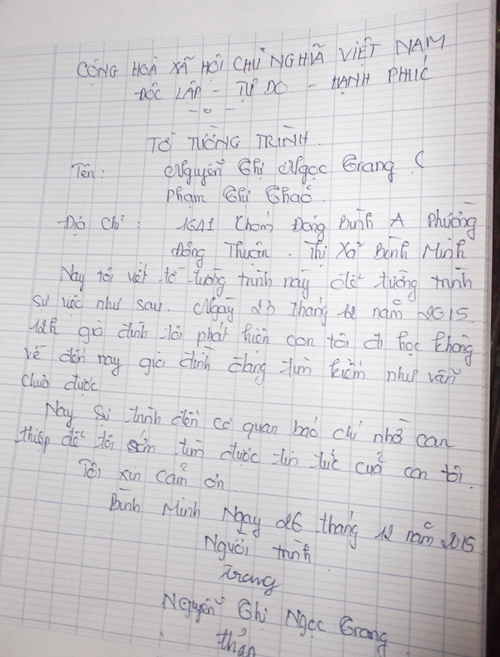 CỘNG HOÀ XÃ HỘI CHỦ NGHĨA VIỆT NAM
ĐỘC LẬP - TỰ DO - HẠNH PHÚC
- o -
TỜ TƯỜNG TRÌNH
Tên: Nguyễn Thị Ngọc Trang (
Phạm Thị Thảo
Địa chỉ: 16A1 Khóm Đông Bình A Phường
Đông Thuận. Thị Xã Bình Minh
Nay tôi viết tờ tường trình này để tường trình
sự việc như sau. Ngày 23 tháng 12 năm 2015.
12h gia đình tôi phát hiện con tôi đi học không
về đến nay gia đình đang tìm kiếm như vẫn
chưa được
Nay sự trình đến cơ quan báo chí nhờ can
thiệp để tôi sớm tìm được tin tức của con tôi.
Tôi xin cảm ơn
Bình Minh Ngày 26 tháng 12 năm 2015
Người trình
Trang
Nguyễn Thị Ngọc Trang